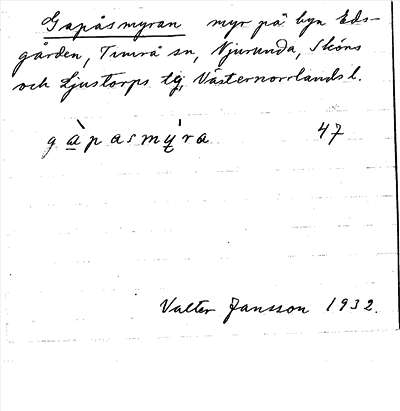 Gapåsmyran myr på byn Eds-
gården, Timrå sn, Njurunda, Sköns
och Ljustorps tg, Västernorrlands l.
gàpasmýra 47
Valter Jansson 1932.